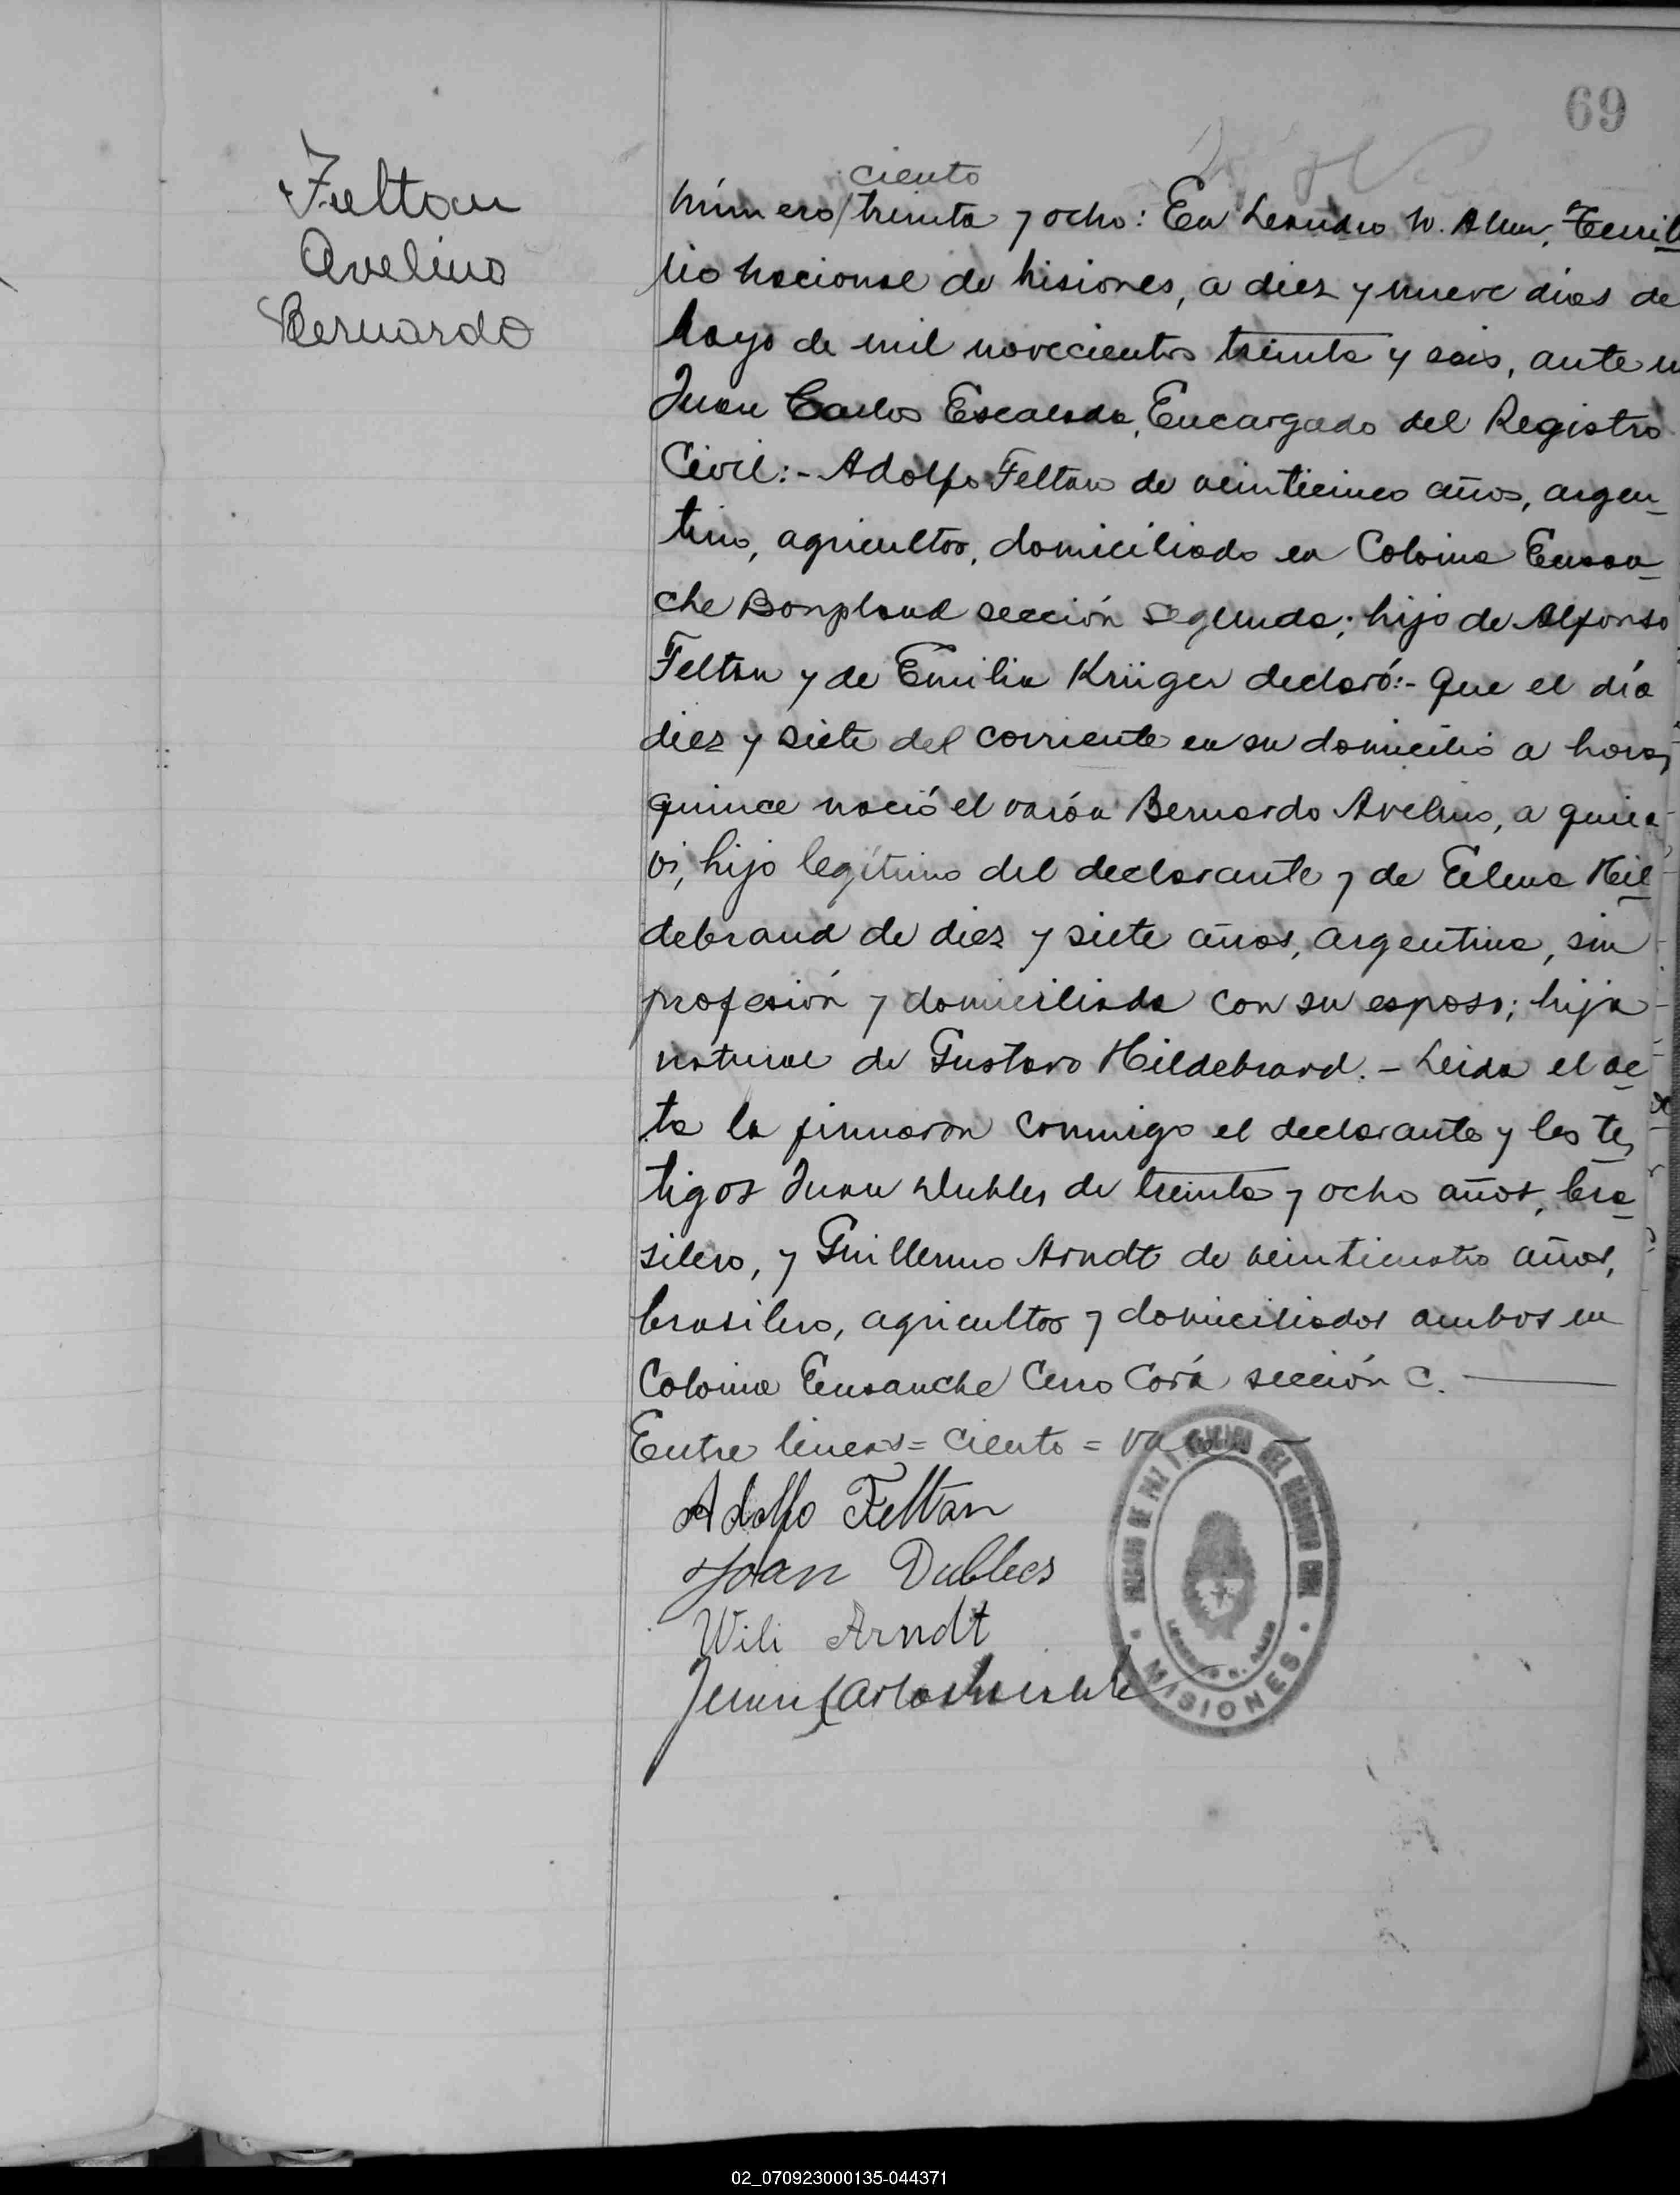 69
Feltan
Avelino
Bernardo
ciento
Número/treinta y ocho: En Leandro N. Alem, Territo
rio Nacional de Misiones, a diez y nueve días de
Mayo de mil novecientos treinta y seis, ante m
Juan Carlos Escalada, Encargado del Registro
Civil:- Adolfo Feltan de veinticinco años, argen_
tino, agricultor, domiciliado en Colonia Ensan_
che Bonpland sección segunda; hijo de Alfonso
Feltan y de Emilia Krüger declaró:- Que el día
diez y siete del corriente en su domicilio a horas
quince nació el varón Bernardo Avelino, a quien
vi, hijo legítimo del declarante y de Elena Hil
debrand de diez y siete años, argentina, sin
profesión y domiciliada con su esposo; hija
natural de Gustavo Hildebrand.- Leida el ac
ta la firmaron conmigo el declarante y los tes
tigos Juan de treinta y ocho años, bra
silero, y Guillermo Arndt de veinticuatro años,
brasilero, agricultor y domiciliados ambos en
Colonia Ensanche Cerro Corá sección C.
Entre lineas= ciento = vale
Adolfo Feltan
Joan Dubles
Wili Arndt
Juan Carlos
MISIONES
02_070923000135-044371